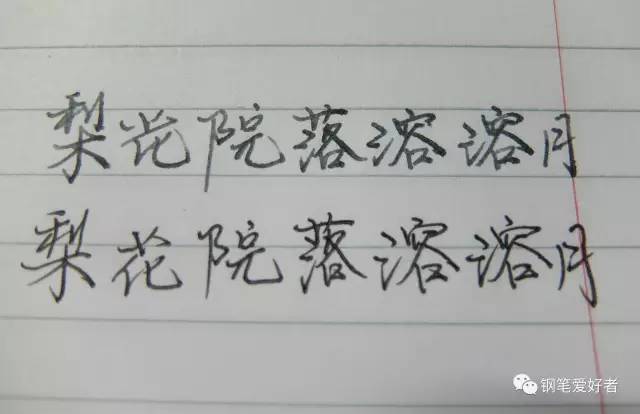 梨花院落溶溶月
梨花院落溶溶月
钢笔爱好者